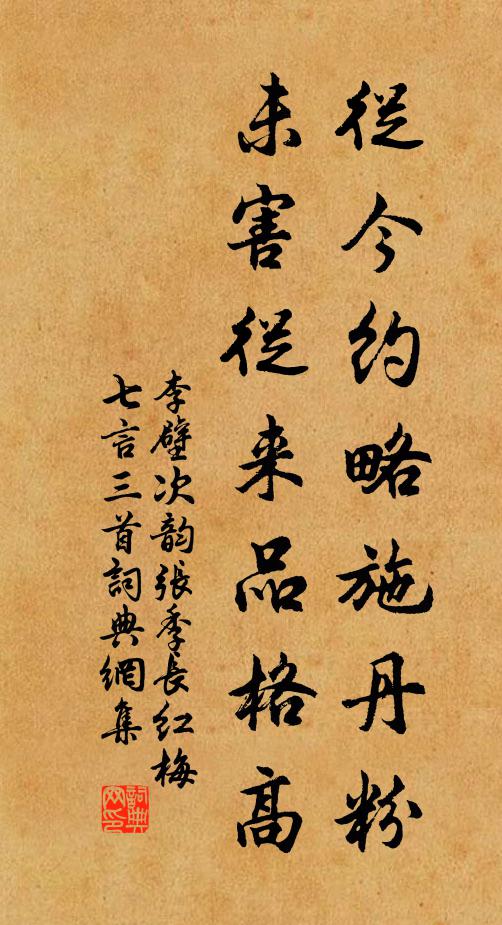 從今約略施丹粉
未害從来品格高
李壁次韵張季長红梅
七言三首詞典網集
詞典
网印